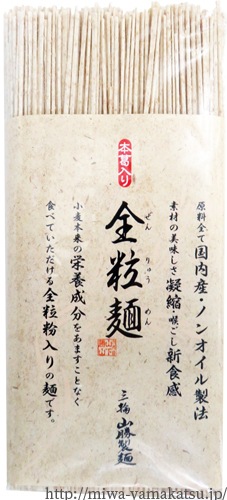 本葛入り
原料全て国内産・ノンオイル製法
素材の美味しさ凝縮・喉ごし新食感
全粒麺
ぜんりゅうめん
小麦本来の栄養成分をあますことなく
食べていただける全粒粉入りの麺です。
三輪 山勝製麺
http://miwa-yamakatsu.jp/